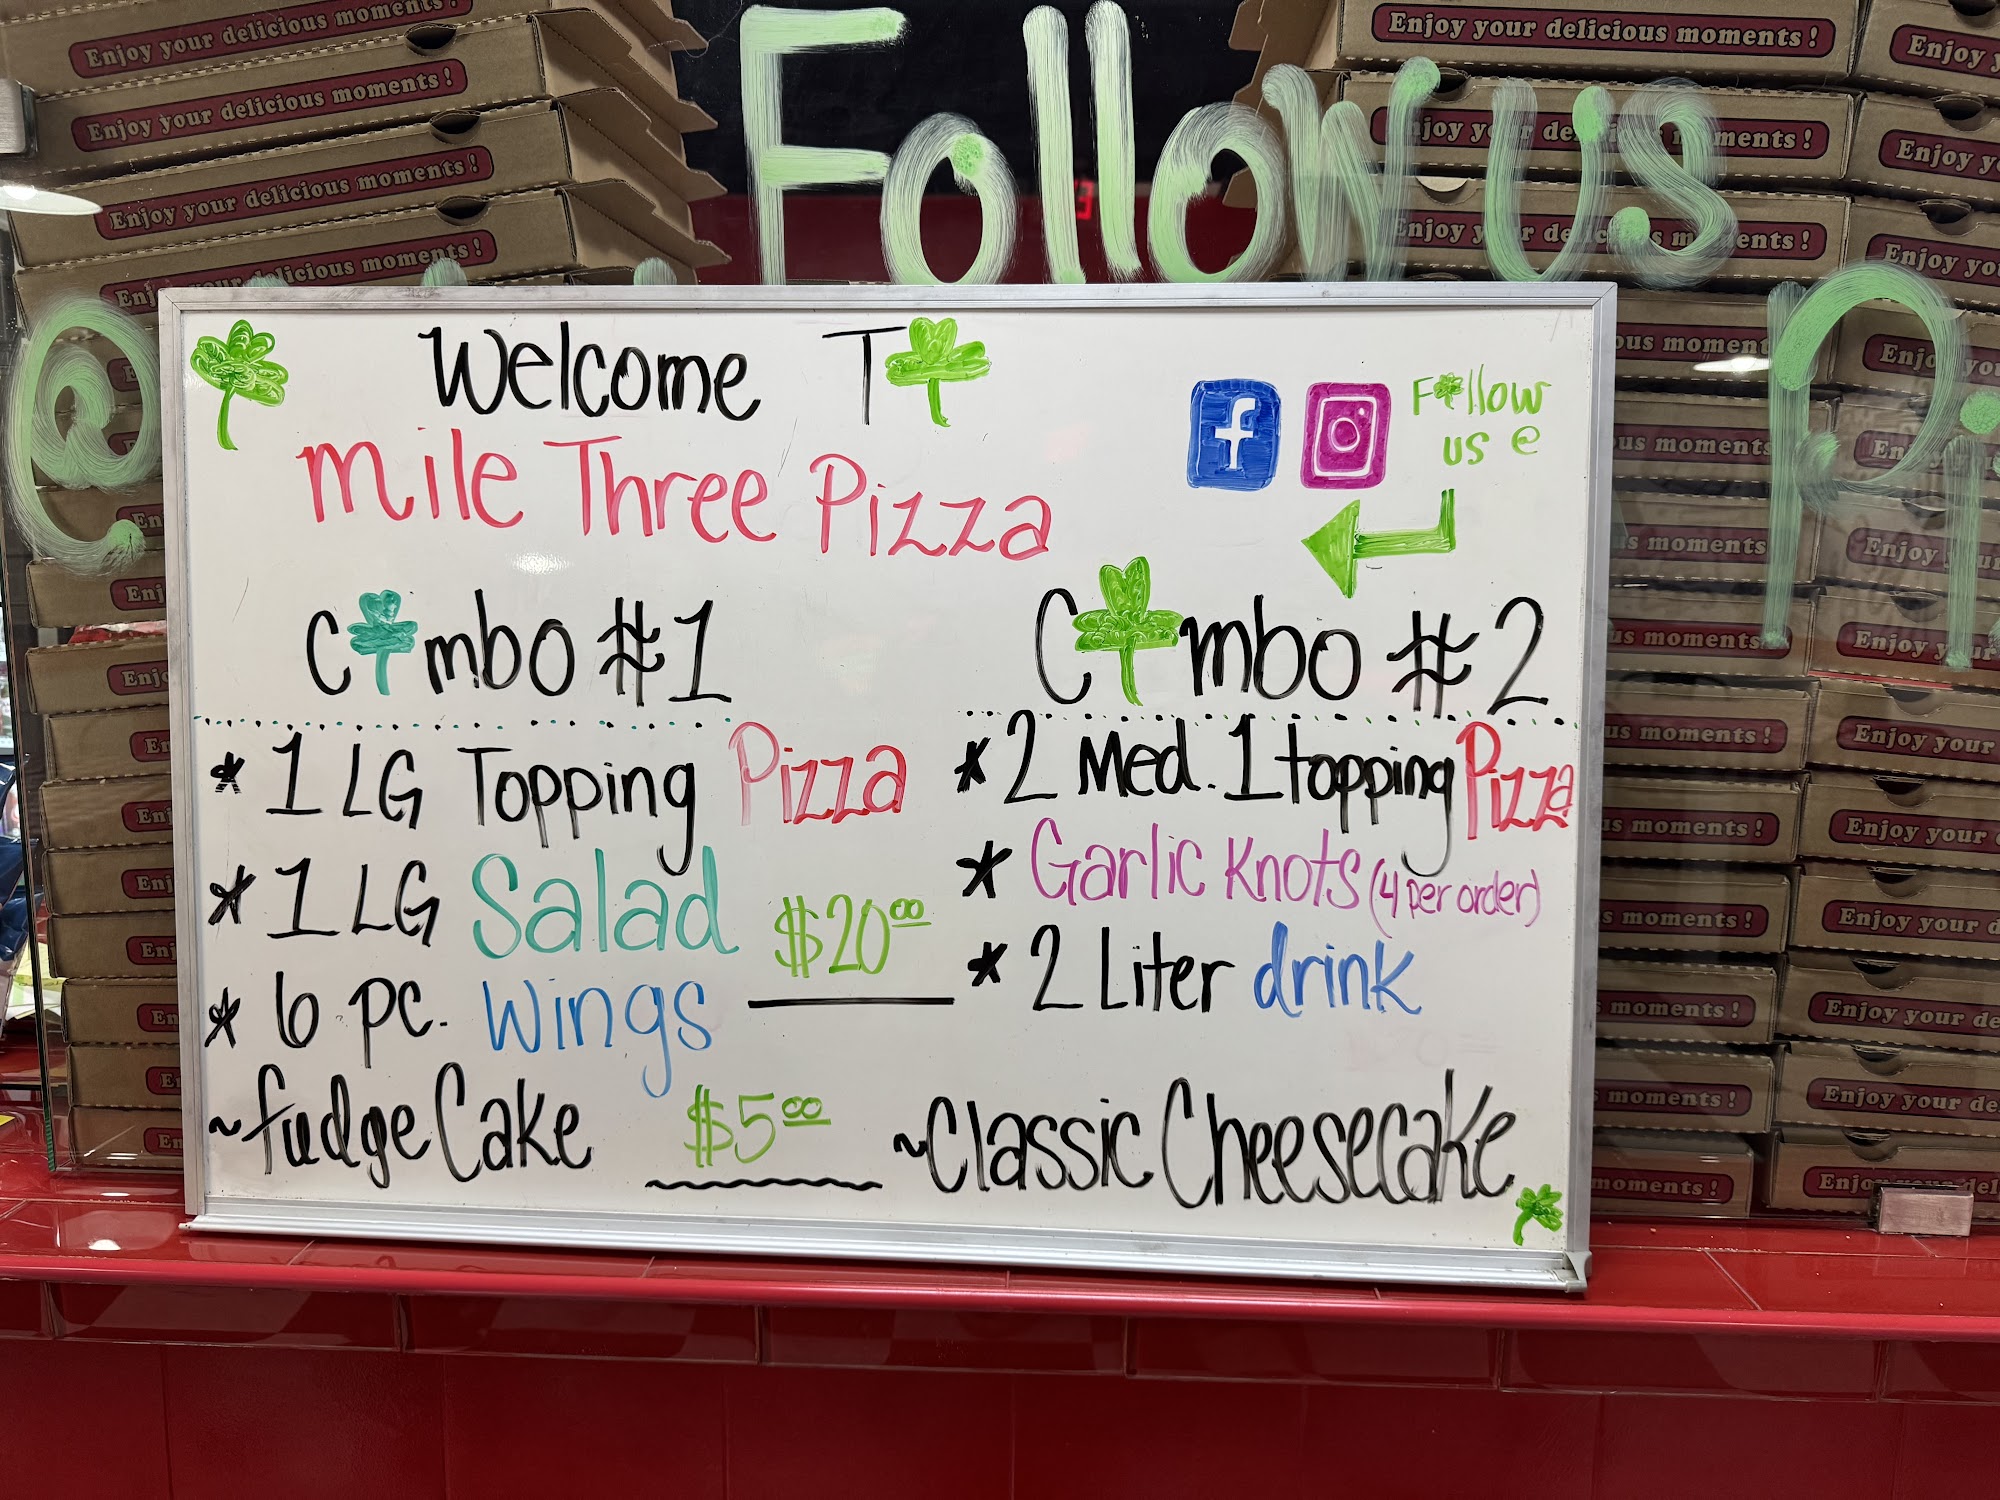 Follow us
@
Pi
Welcome To
Mile Three Pizza
f
Follow
us @
Combo #1
* 1 LG Topping Pizza
* 1 LG Salad
* 6 pc. Wings
$20.00
Combo #2
* 2 Med. 1 topping Pizza
* Garlic Knots (4 per order)
* 2 Liter drink
~Fudge Cake
$5.00
~Classic Cheesecake
Enjoy your delicious moments!
Enjoy your delicious moments!
Enjoy your delicious moments!
Enjoy your delicious moments!
Enjoy your delicious moments!